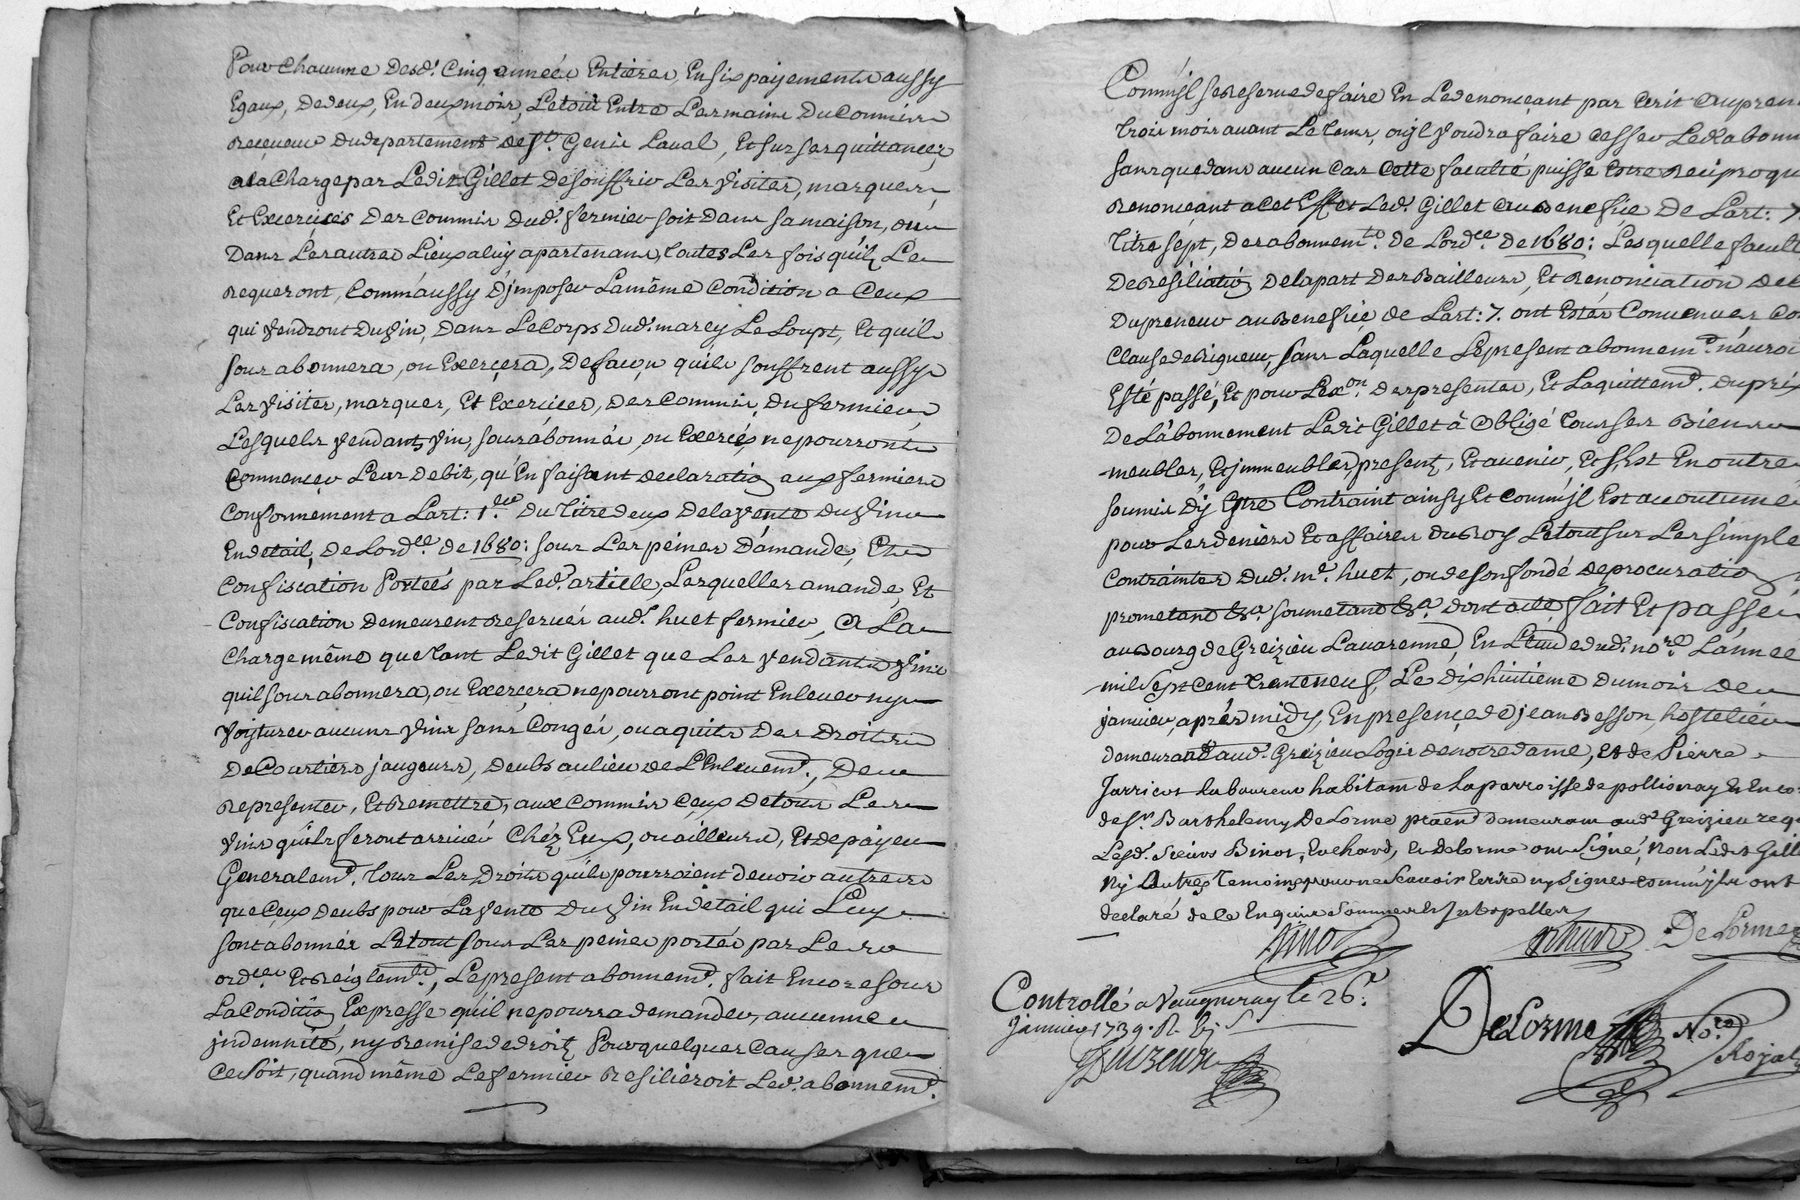 Pour chacunne Desd: Cinq années Entieres, En six payements aussy
Egaux, de deux, En deux mois, Le tout Entre Les mains Du Commis
Receveur Du departement de St. Genis Laval, Et sur ses quittances,
a la Charge par Ledit Gillet De souffrir Les visites, marques
Et Exercices Des Commis Dud: fermier soit Dans sa maison, ou
Dans Les autres Lieux a luy apartenans, toutes Les fois quilz Le
Requeront, Comm'aussy D'jmposer La même Condition a Ceux
qui vendront Du vin, Dans Le Corps Dud: marcy Le Loupt, Et quil
sous abonnera, ou Exerçera, De façon quils souffrent aussy
Les visites, marques, Et Exercices, Des Commis, Du fermier
Lesquels vendants vin, sous abonnés, ou Exercés ne pourront
Commencer Leur Debit, qu'En faisant declaratio aux fermiers
Conformement a L'art: 1.er Du titre deux De la vente Du vin
En detail, De L'ord.ce de 1680: sous Les peines D'amande, Et
Confiscation Portées par Led. article, Lesquelles amande, Et
Confiscation demeurent reservés aud. huet fermier, A La
Charge même que tant Ledit Gillet que Les vendants vin
quil sous abonnera, ou Exerçera ne pourront point Enlever ny
Voiturer aucuns vins sans Congés, ou aquits Des Droits
De Courtiers jaugeurs, deubs au lieu de L'Enlevem.t, De
Representer, Et Remettre, aux Commis Ceux de tous Les
vins qu'ils feront arriver Chéz Eux, ou ailleurs, Et de payer
Generalem.t tous Les Droits qu'ils pourroient devoir autres
que Ceux Deubs pour La vente Du vin En detail qui Luy
sont abonnés Le tout sous Les peines portés par Les
ord.ces Et Reiglem.ts, Le present abonnem.t fait Encore sous
La Conditio Expresse qu'il ne pourra demander, aucunne
jndemnité, ny Remise de droitz Pour quelques Causes que
Ce soit, quand même Le fermier Resilieroit Led. abonnem.t
Comm'jl se Reserve de faire En Le denonceant par Ecrit au pren
trois mois avant Le tems, ou jl voudra faire cesser Led. abonn
sans que dans aucun Cas Cette faculté puisse Estre Reciproqu
Renonceant a Cet Effet Led. Gillet au Benefice De L'art: 7.
titre sept, Des abonnem.ts de L'ord.ce De 1680: Lesquelle facult
De Resiliatio De la part Des Bailleurs, Et Renonciation De
Du preneur au Benefice de L'art: 7. ont Estés Convenues Co
Clause de Rigueur, sans Laquelle Le present abonnem.t n'auroi
Esté passé, Et pour L'ex.on Des presentes, Et L'aquittem.t Du prix
De L'abonnement Ledit Gillet à obligé tous ses Biens
meubles, Et jmmeubles presentz, Et avenir, Et s'est En outre
soumis D'y Estre Contraint ainsy Et Comm'jl Est accoutumé
pour Les deniers Et affaires Du Roy Le tout sur Les simple
Contraintes Dud. m.e huet, ou de son fondé de procuratio
prometant &a. soumetant &a. dont acte, fait Et passé
au Bourg de Greizieu Lavarenne, En L'Etude dud: no.re L'année
mil sept cent trente neuf, Le dixhuitième Du mois De
janvier, après midy, En presence de jean Besson, hostelier
demeurant aud. Greizieu Logis de notre dame, Et de Pierre
Jarricot Laboureur habitant de La parroisse de pollionay Et Enco
de s.r Barthelemy De Lorme praen demeurant aud. Greizieu req
Lesd. sieurs Binot, Evehard, Et delorme ont signé, Non Led. Gill
Ny L'autre temoins pour ne sçavoir Ecrire ny signer comm'jls ont
declaré de ce Enquis sommés Et Jnterpellés
Binot
DeLorme
Controllé a Vaugneray le 26.e
Janvier 1739. R.
DeLorme No.re
Royal